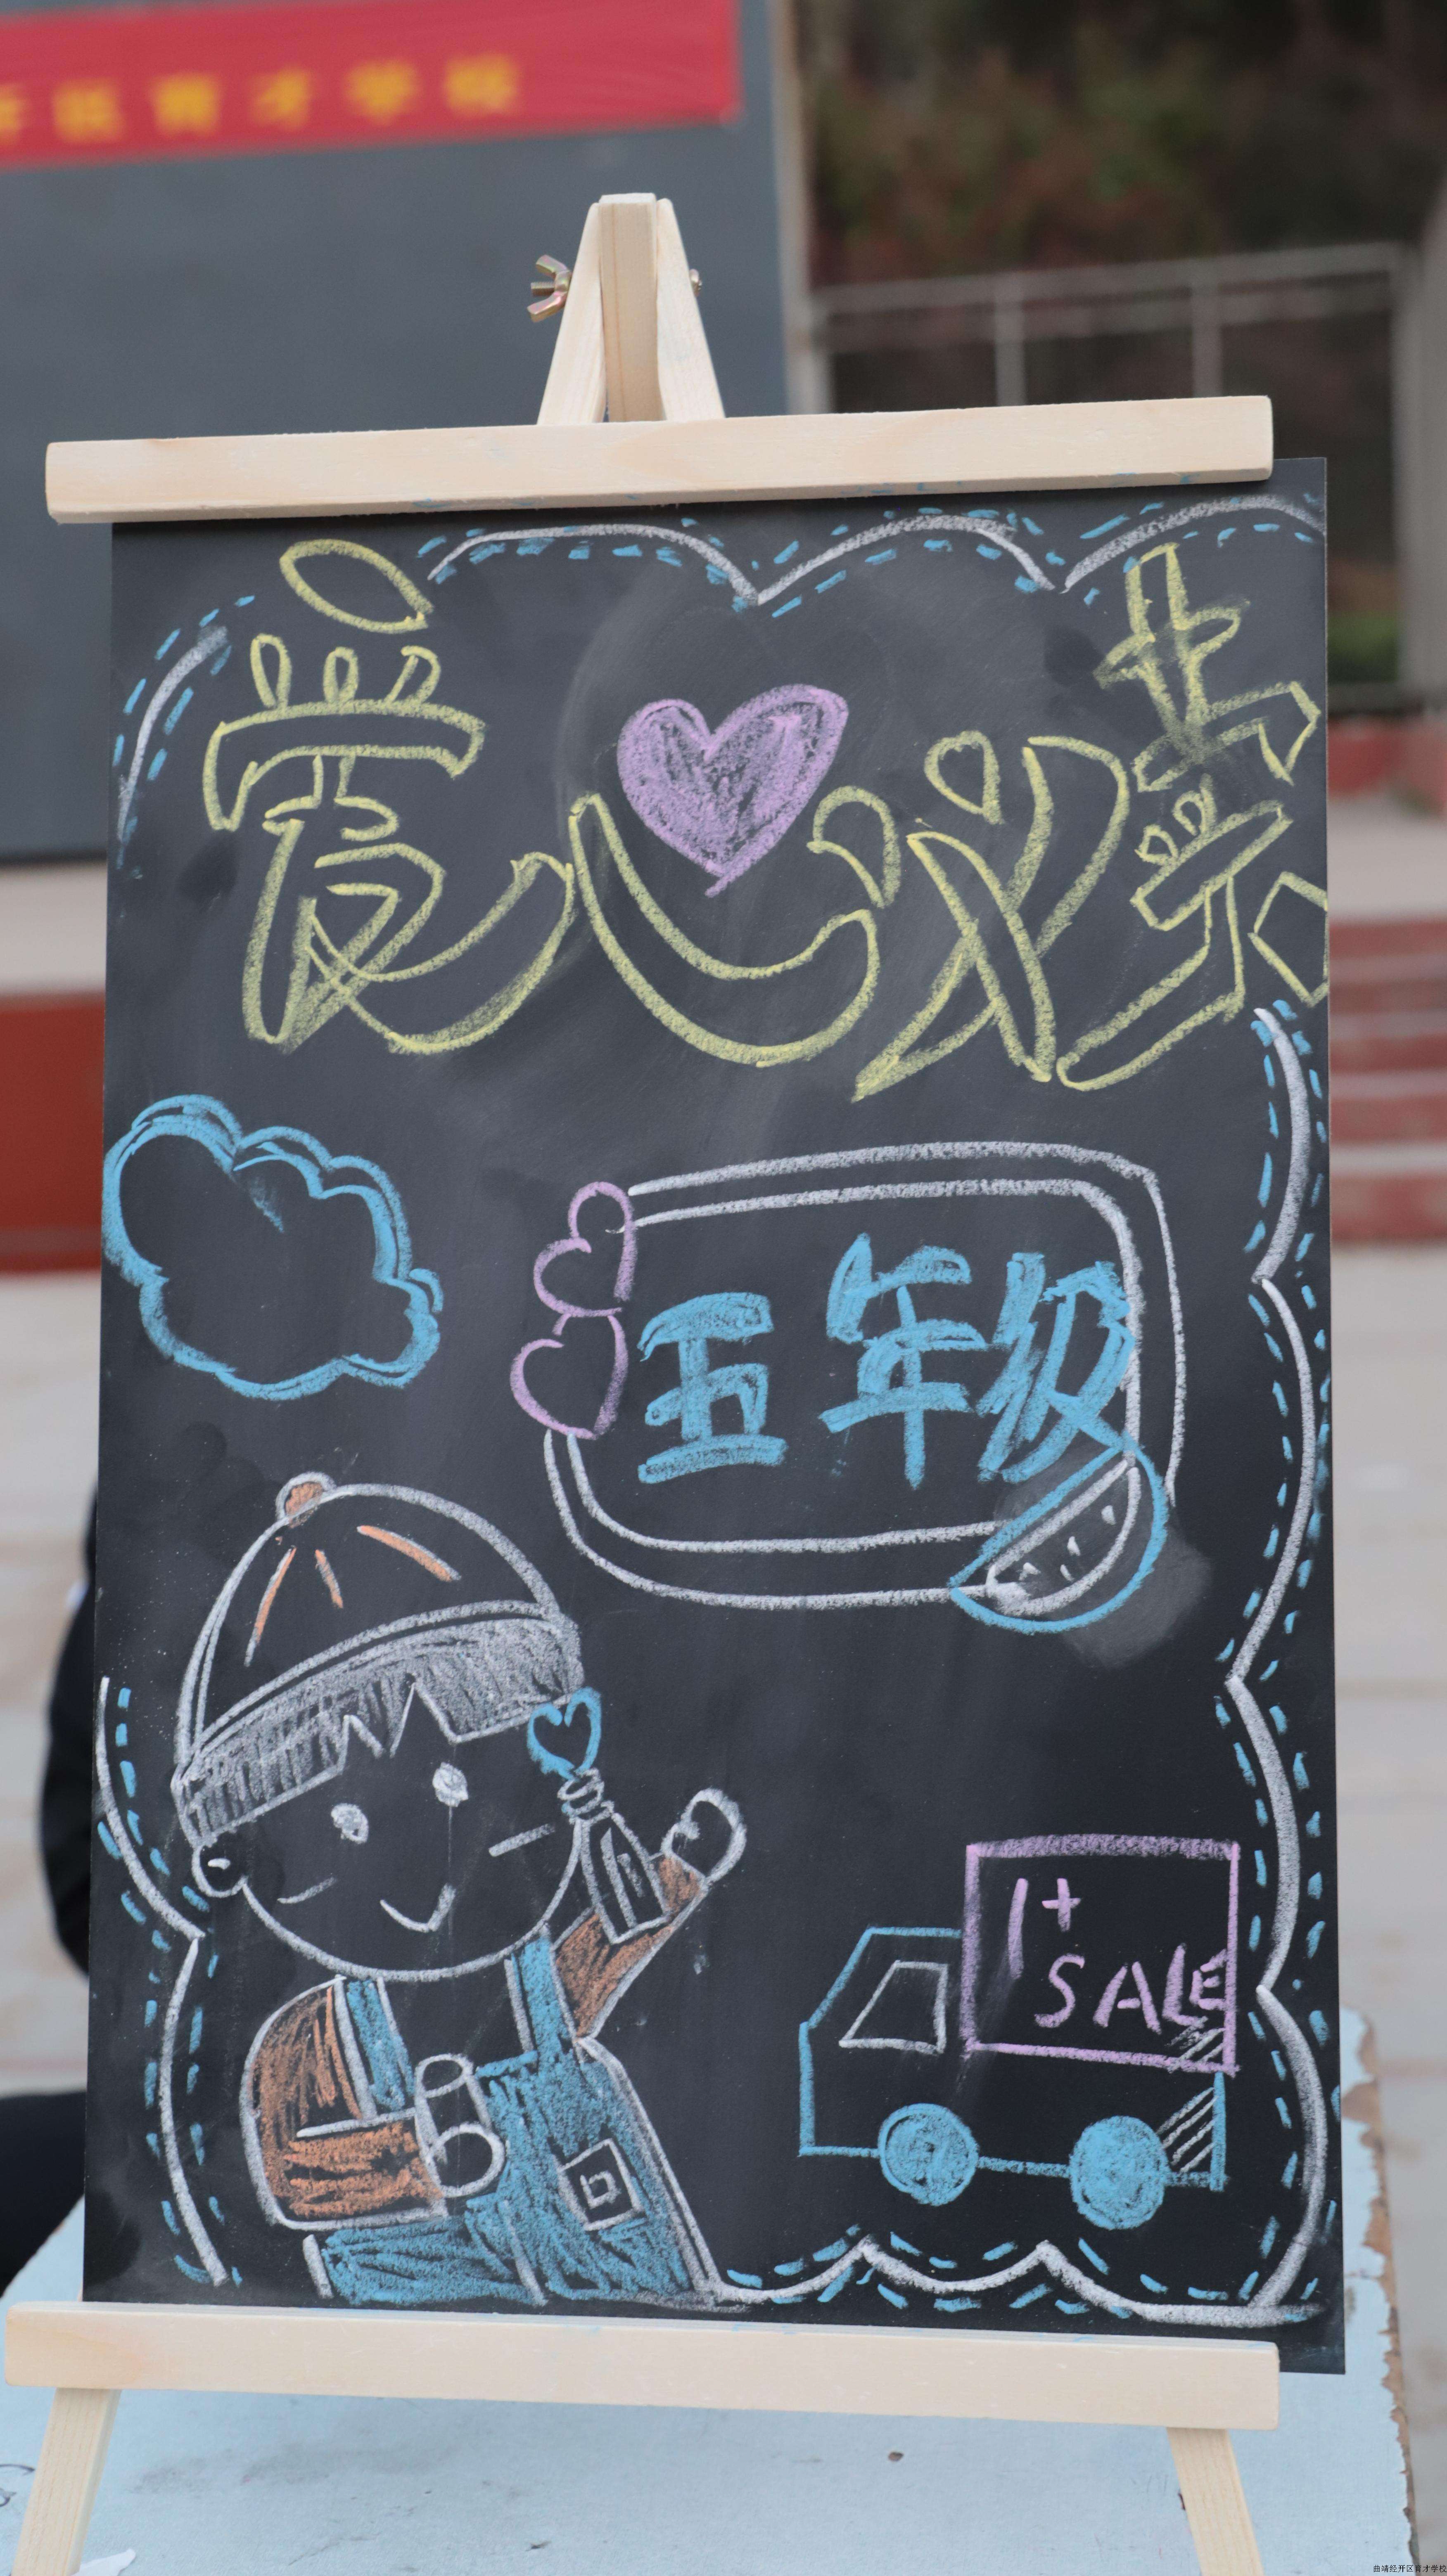 开区育才学校
爱心义卖
五年级
1+
SALE
曲靖经开区育才学校